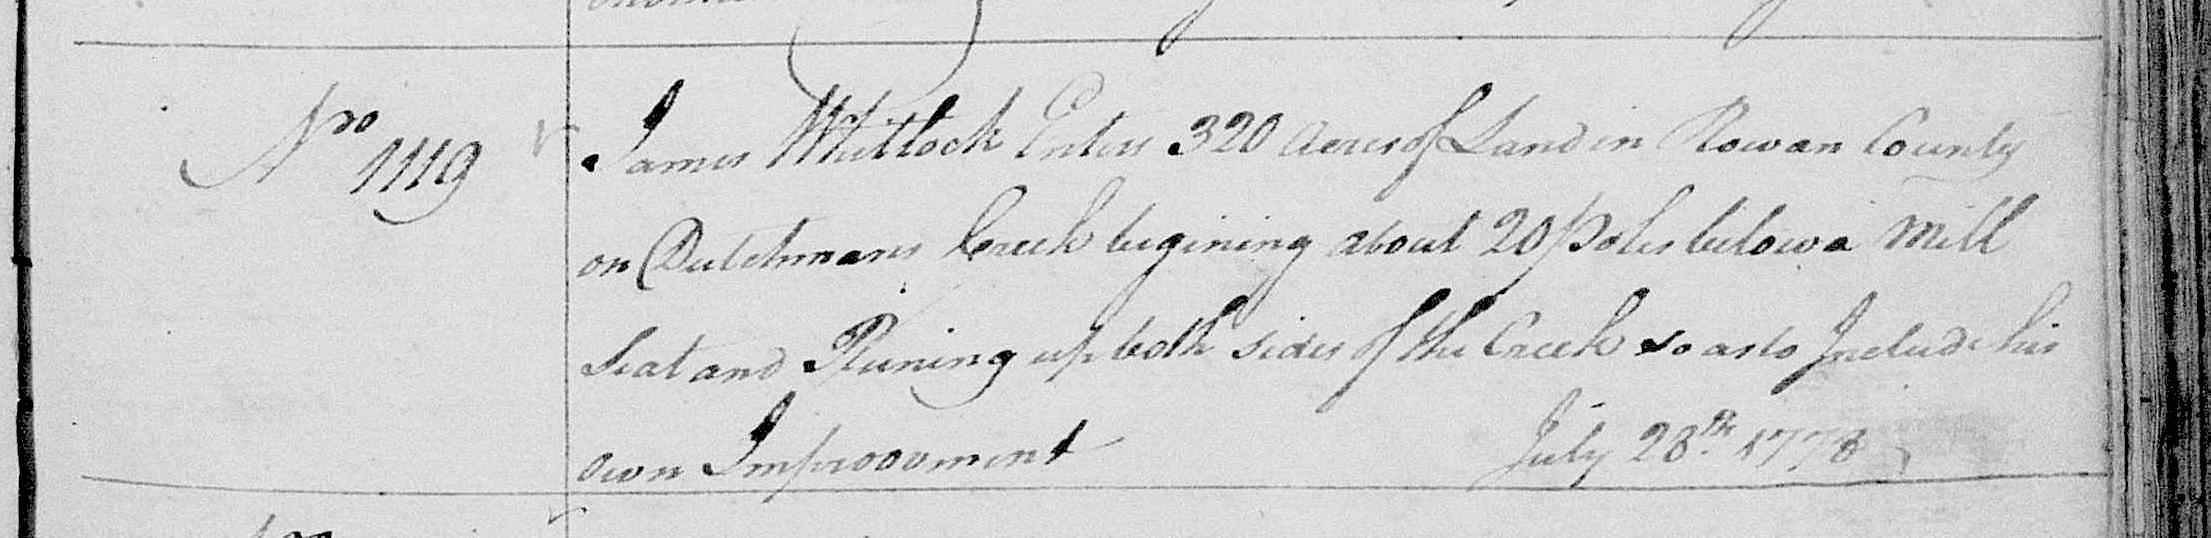 Nro 1119
James Whitlock Enters 320 Acres of Land in Rowan County
on Dutchmans Creek begining about 20 poles below a Mill
Seat and Runing up both sides of the Creek so as to Include his
own Improovment July 28th 1778